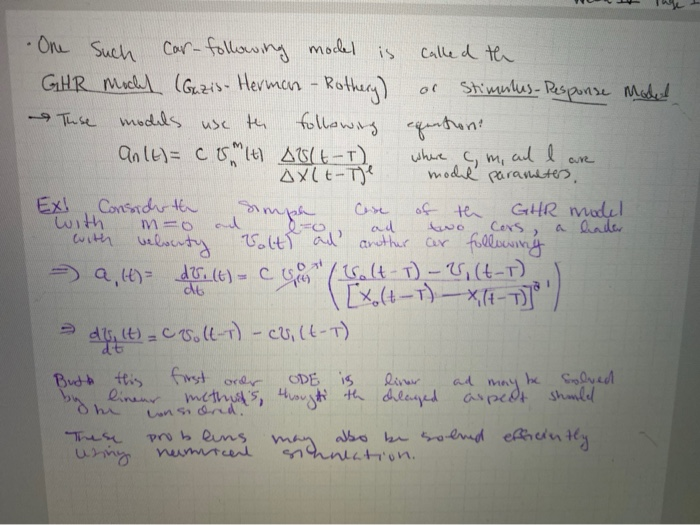 • One such car-following model is called the
GHR Model (Gazis-Herman-Rothery) or Stimulus-Response Model
→ These models use the following equation:
an(t) = c vn^m(t) Δv(t-T) / Δx(t-T)^l where c, m, and l are
model parameters.
Ex: Consider the simple case of the GHR model
with m=0 and l=0, and two cars, a leader
with velocity v0(t) and another car following
⇒ a1(t) = dv1(t)/dt = c v1(t)^0 ( v0(t-T) - v1(t-T) / [x0(t-T) - x1(t-T)]^0 )
⇒ dv1(t)/dt = c v0(t-T) - cv1(t-T)
this first order ODE is linear and may be solved
by linear methods, though the delayed aspect should
be considered.
These problems may also be solved efficiently
using numerical